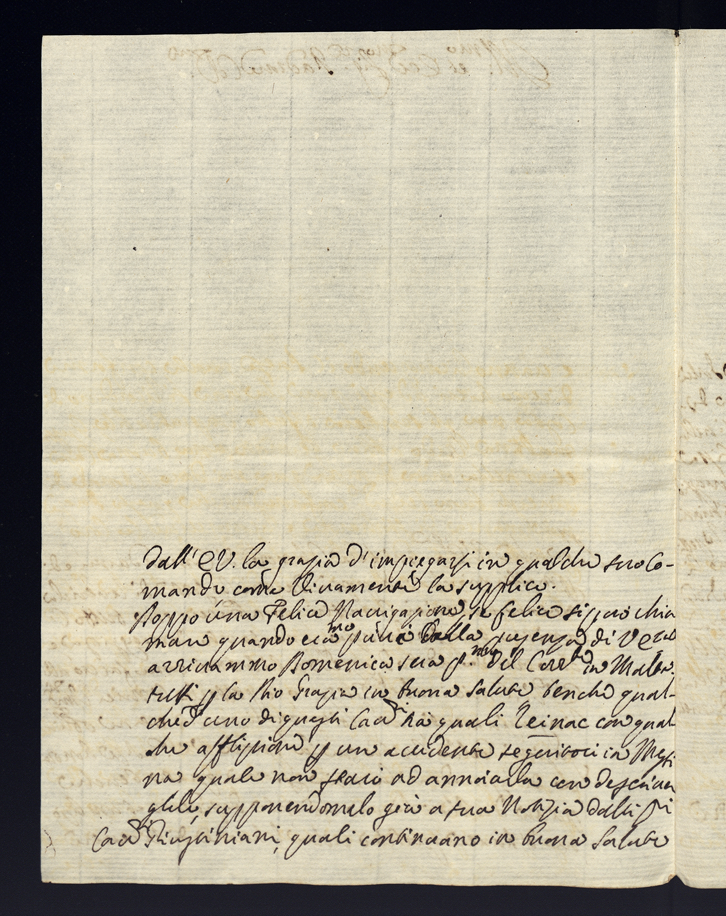 dall' E V. la grazia d'impiegarsi in qualche suo Co-
mando come vivamente la supplico.
Doppo una Felice Navigazione se felice si può chia
mare quando eramo privi dalla presenza di V E
arrivammo Domenica sera p.mo del Corr.te in Malta
tutti p la Dio Grazia in buona Salute benche qual-
che d'uno di questi Cav.ri fra quali Reinac con qual
che afflizione p un accidente seguitoci in Messi
na quale non starò ad annoiarla con descriver
glielo, supponendomelo già a sua Notizia dalli
Cav.ri Giustiniani, quali continuano in buona Salute